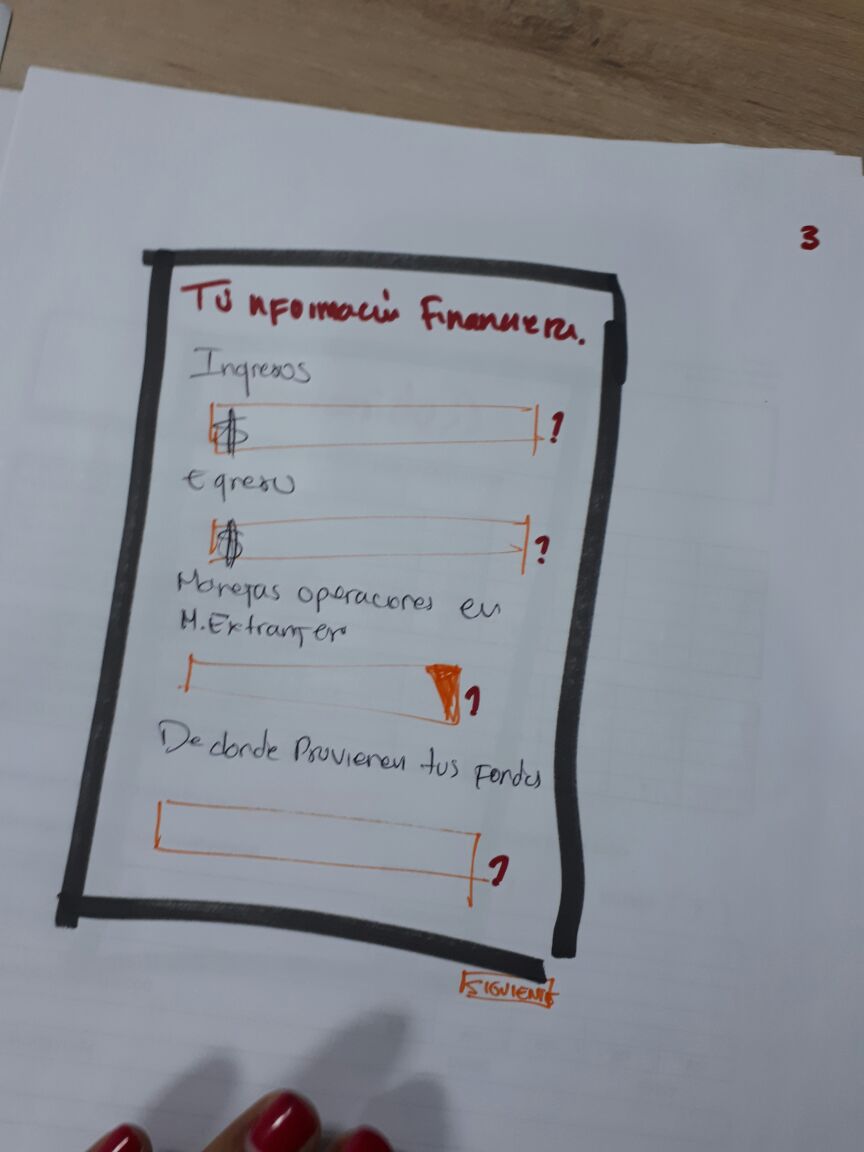 3
Tú nformación Financiera.
Ingresos
$ ?
Egreso
$ ?
Manejas operaciones en
M. Extranjer
?
De donde Provienen tus Fondos
?
SIGUIENTE